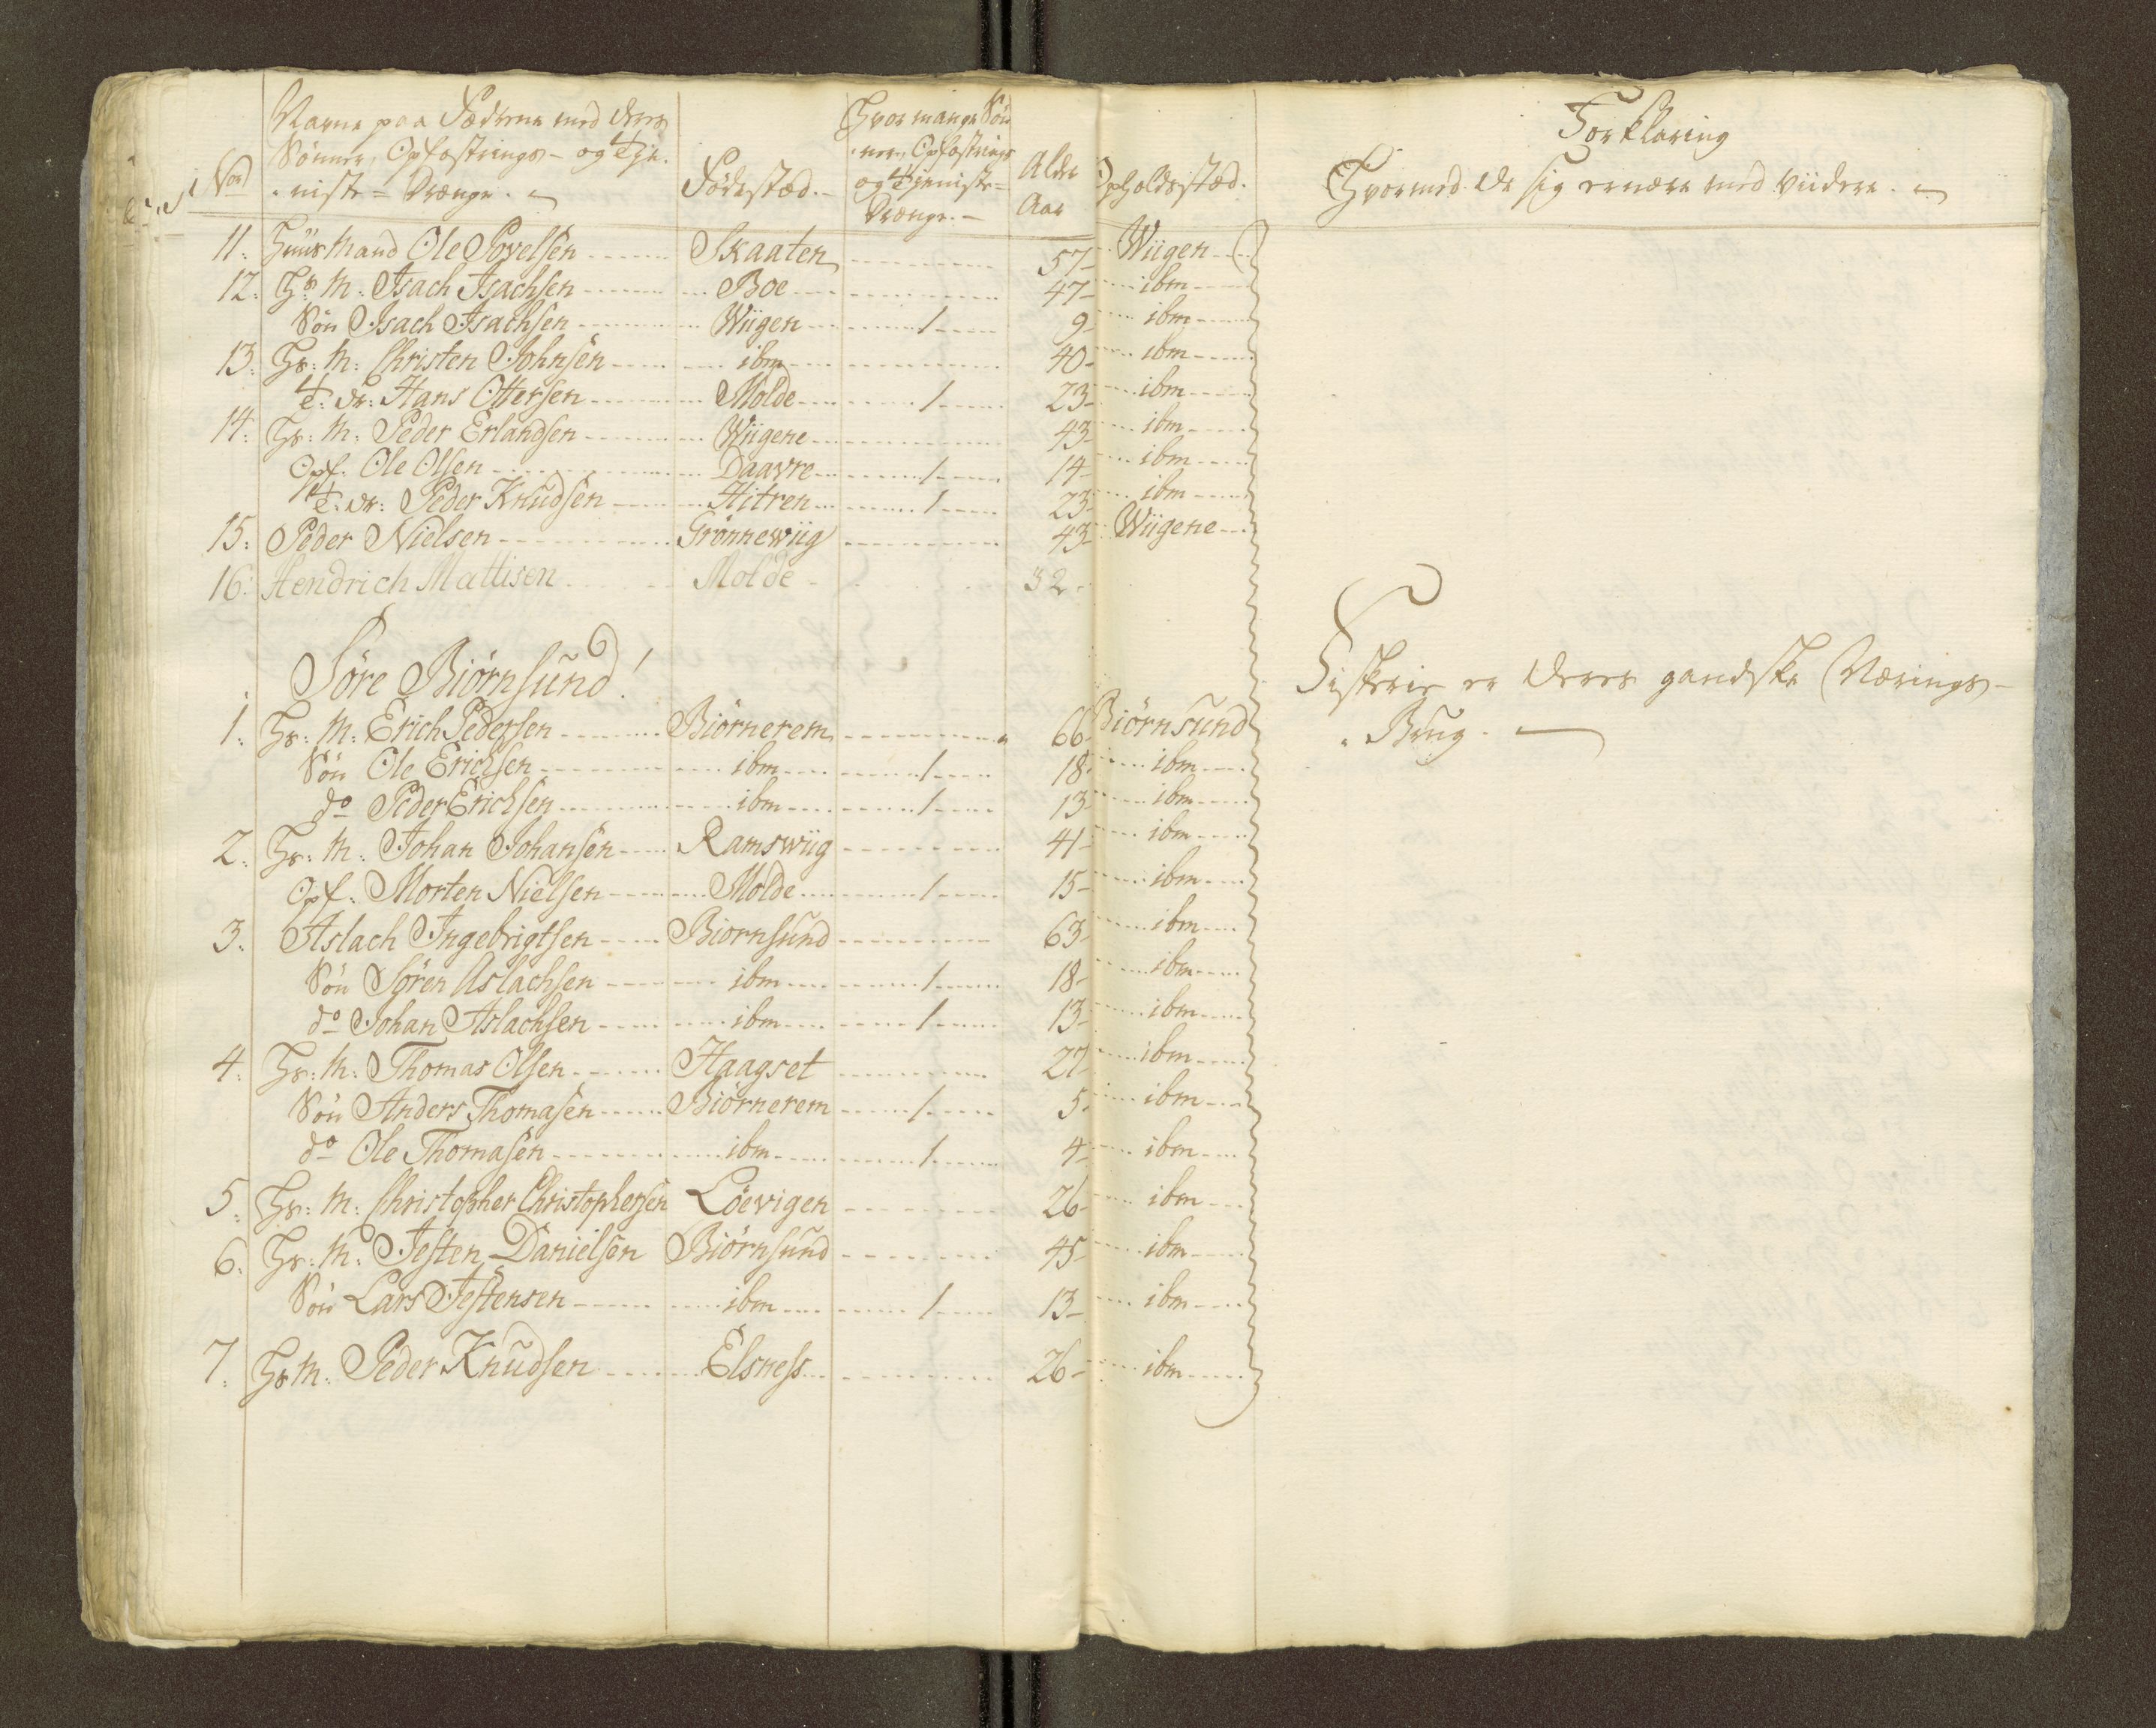 Nor Navne paa Fæderne med deres Sønner, Opfostrings- og Tje- niste- Drænge. Fødestæd. Hvor mange Søn- ner, Opfostrings og Tjeniste- Drænge. Alder Aar Opholdsstæd. Forklaring
Hvormed de sig ernære med viidere.
11. Huusmand Ole Povelsen Skaaten 57 Wiigen
12. Hs: M: Isach Isachsen Boe 47 ibm
Søn Isach Isachsen Wiigen 1 9 ibm
13. Hs: M: Christen Johnsen ibm 40 ibm
T: Dr: Hans Ottersen Molde 1 23 ibm
14. Hs: M: Peder Erlandsen Wiigene 43 ibm
Opf. Ole Olsen Daavre 1 14 ibm
T: Dr: Peder Knudsen Hitren 1 23 ibm
15. Peder Nielsen Grönnewiig 43 Wiigene
16. Hendrich Mattisen Molde 32
Söre Biörnsund!
1. Hs: M: Erich Pedersen Biörnerem 66 Biörnsund
Søn Ole Erichsen ibm 1 18 ibm
do Peder Erichsen ibm 1 13 ibm
2. Hs: M: Johan Johansen Ramswiig 41 ibm
Opf: Morten Nielsen Molde 1 15 ibm
3. Aslach Ingebrigtsen Biornsund 63 ibm
Søn Sören Aslachsen ibm 1 18 ibm
do Johan Aslachsen ibm 1 13 ibm
4. Hs: M: Thomas Olsen Haagset 27 ibm
Søn Anders Thomasen Biörnerem 1 5 ibm
do Ole Thomasen ibm 1 4 ibm
5. Hs: M: Christopher Christophersen Löevigen 26 ibm
6. Hs: M: Jesten Danielsen Biörnsund 45 ibm
Søn Lars Jestensen ibm 1 13 ibm
7. Hs M: Peder Knudsen Elsness 26 ibm
Fiskerie er deres gandske Nærings-
Brug.